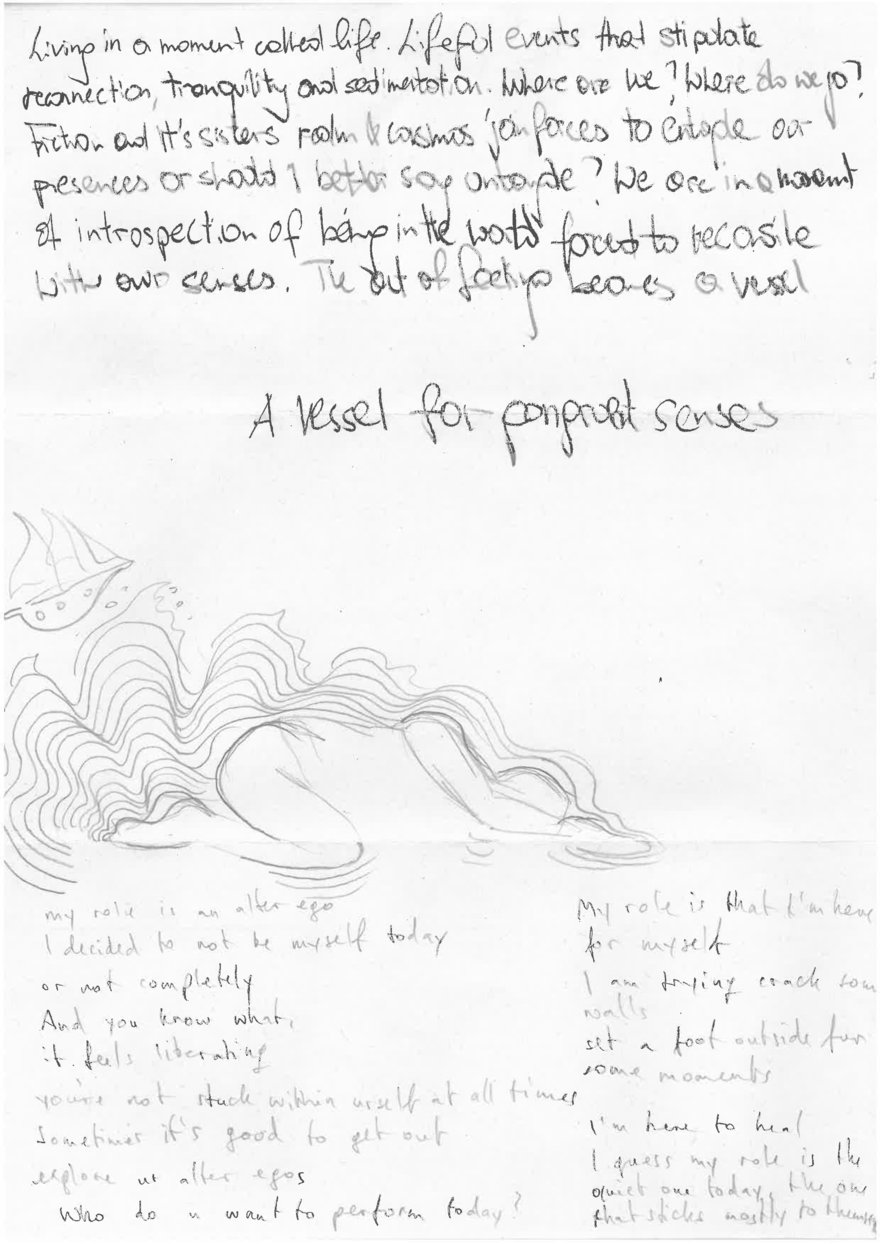 Living in a moment called life. Lifeful events that stipulate
reconnection, tranquility and sedimentation. Where are we? Where do we go?
Friction and it's sisters realm & cosmos join forces to entagle our
presences or should I better say untangle? We are in a moment
of introspection of being in the world forced to reconsile
with our senses. The out of feelings becomes a vessel
A vessel for congruent senses
my role is an alter ego
I decided to not be myself today
or not completely
And you know what,
it feels liberating
you're not stuck within urself at all times
Sometimes it's good to get out
explore ur alter egos
Who do u want to perform today?
My role is that I'm here
for myself
I am trying crack som
walls
set a foot outside for
some moments
I'm here to heal
I guess my role is the
quiet one today, the one
that sticks mostly to themse